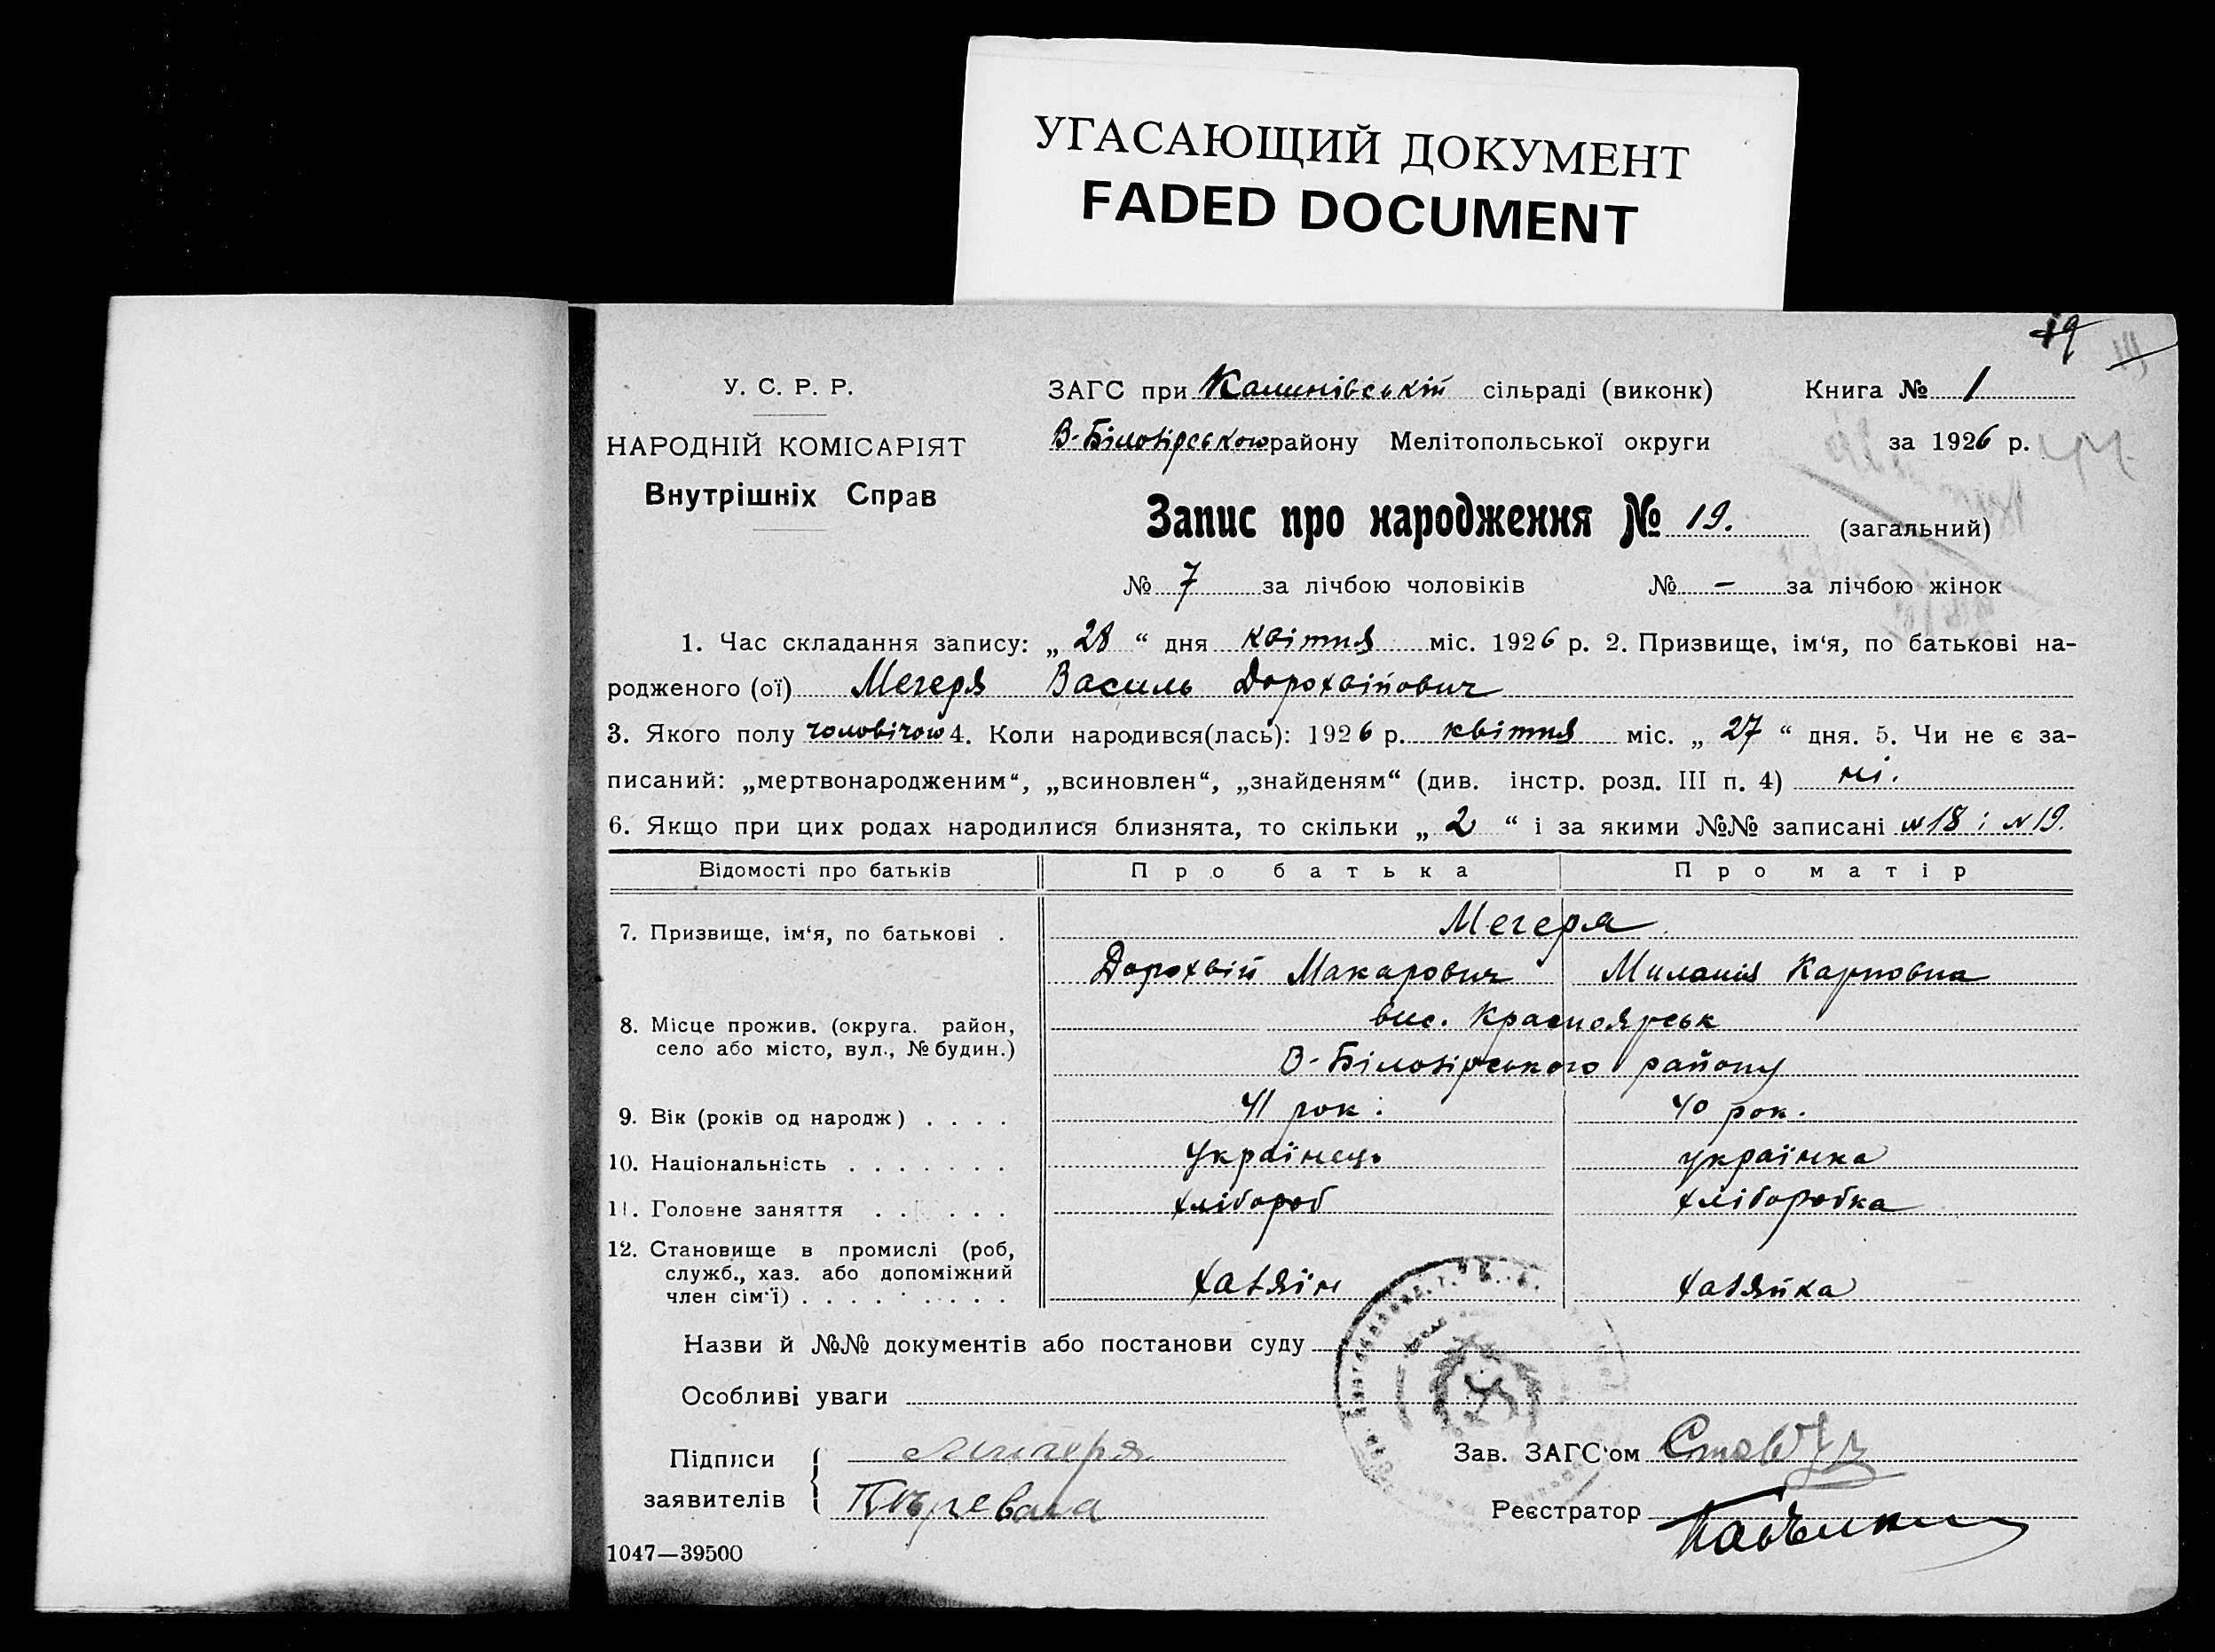 УГАСАЮЩИЙ ДОКУМЕНТ
FADED DOCUMENT
19
У. С. Р. Р.
НАРОДНІЙ КОМІСАРІЯТ
Внутрішніх Справ
ЗАГС при Калинівській сільраді (виконк) Книга № 1
В-Білозірського району Мелітопольської округи за 1926 р.
Запис про народження № 19. (загальний)
№ 7 за лічбою чоловіків № – за лічбою жінок
1. Час складання запису: „ 28 “ дня квітня міс. 1926 р. 2. Призвище, ім‘я, по батькові на-
родженого (ої) Мегеря Василь Дорохвійович
3. Якого полу чоловічого 4. Коли народився(лась): 1926 р. квітня міс. „ 27 “ дня. 5. Чи не є за-
писаний: „мертвонародженим“, „всиновлен“, „знайденям“ (див. інстр. розд. III п. 4) ні.
6. Якщо при цих родах народилися близнята, то скільки „ 2 “ і за якими №№ записані №18 і №19.
Відомості про батьків Про батька Про матір
7. Призвище, ім‘я, по батькові . Мегеря
Дорохвій Макарович Миланія Карповна
8. Місце прожив. (округа. район, вис. Красноярськ
село або місто, вул., № будин.)
В-Білозірського району
9. Вік (років од народж) . . . . 41 рок. 40 рок.
10. Національність . . . . . . . Українець українка
11. Головне заняття . . . . . . хлібороб хліборобка
12. Становище в промислі (роб,
служб., хаз. або допоміжний
член сім‘ї) . . . . . . . . . хазяїн хазяйка
Назви й №№ документів або постанови суду
Особливі уваги
Підписи
заявителів
Зав. ЗАГС‘ом
Реєстратор
1047—39500